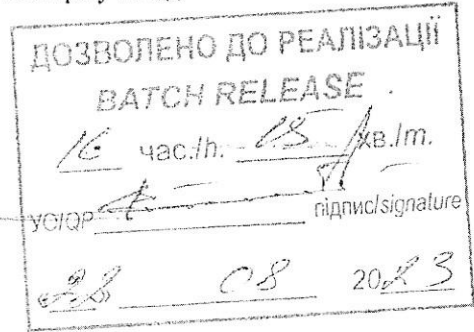 ДОЗВОЛЕНО ДО РЕАЛІЗАЦІЇ
BATCH RELEASE
16 час./h. 15 хв./m.
УО/QP підпис/signature
28 08 2023